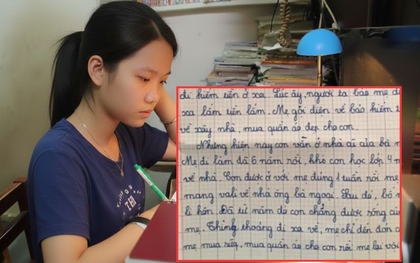 đi kiếm tiền ở xa. Lúc ấy, người ta bảo mẹ đi
xa lắm tiền lắm. Mẹ gọi điện về bảo kiếm t
về xây nhà, mua quần áo đẹp cho con.
Nhưng hiện nay con vẫn ở nhà cũ của bà n
Mẹ đi làm đã 6 năm rồi, khi con học lớp 4 m
về nhà. Con được ở với mẹ đúng 1 tuần rồi mẹ
mang vali về nhà ông bà ngoại. Sau đó, bố
li hôn. Đã từ năm đó con chẳng được sống cùn
mẹ. Thỉnh thoảng đi xa về, mẹ chỉ đến đón c
mẹ mua sữa, mua quần áo cho con rồi mẹ lại vội